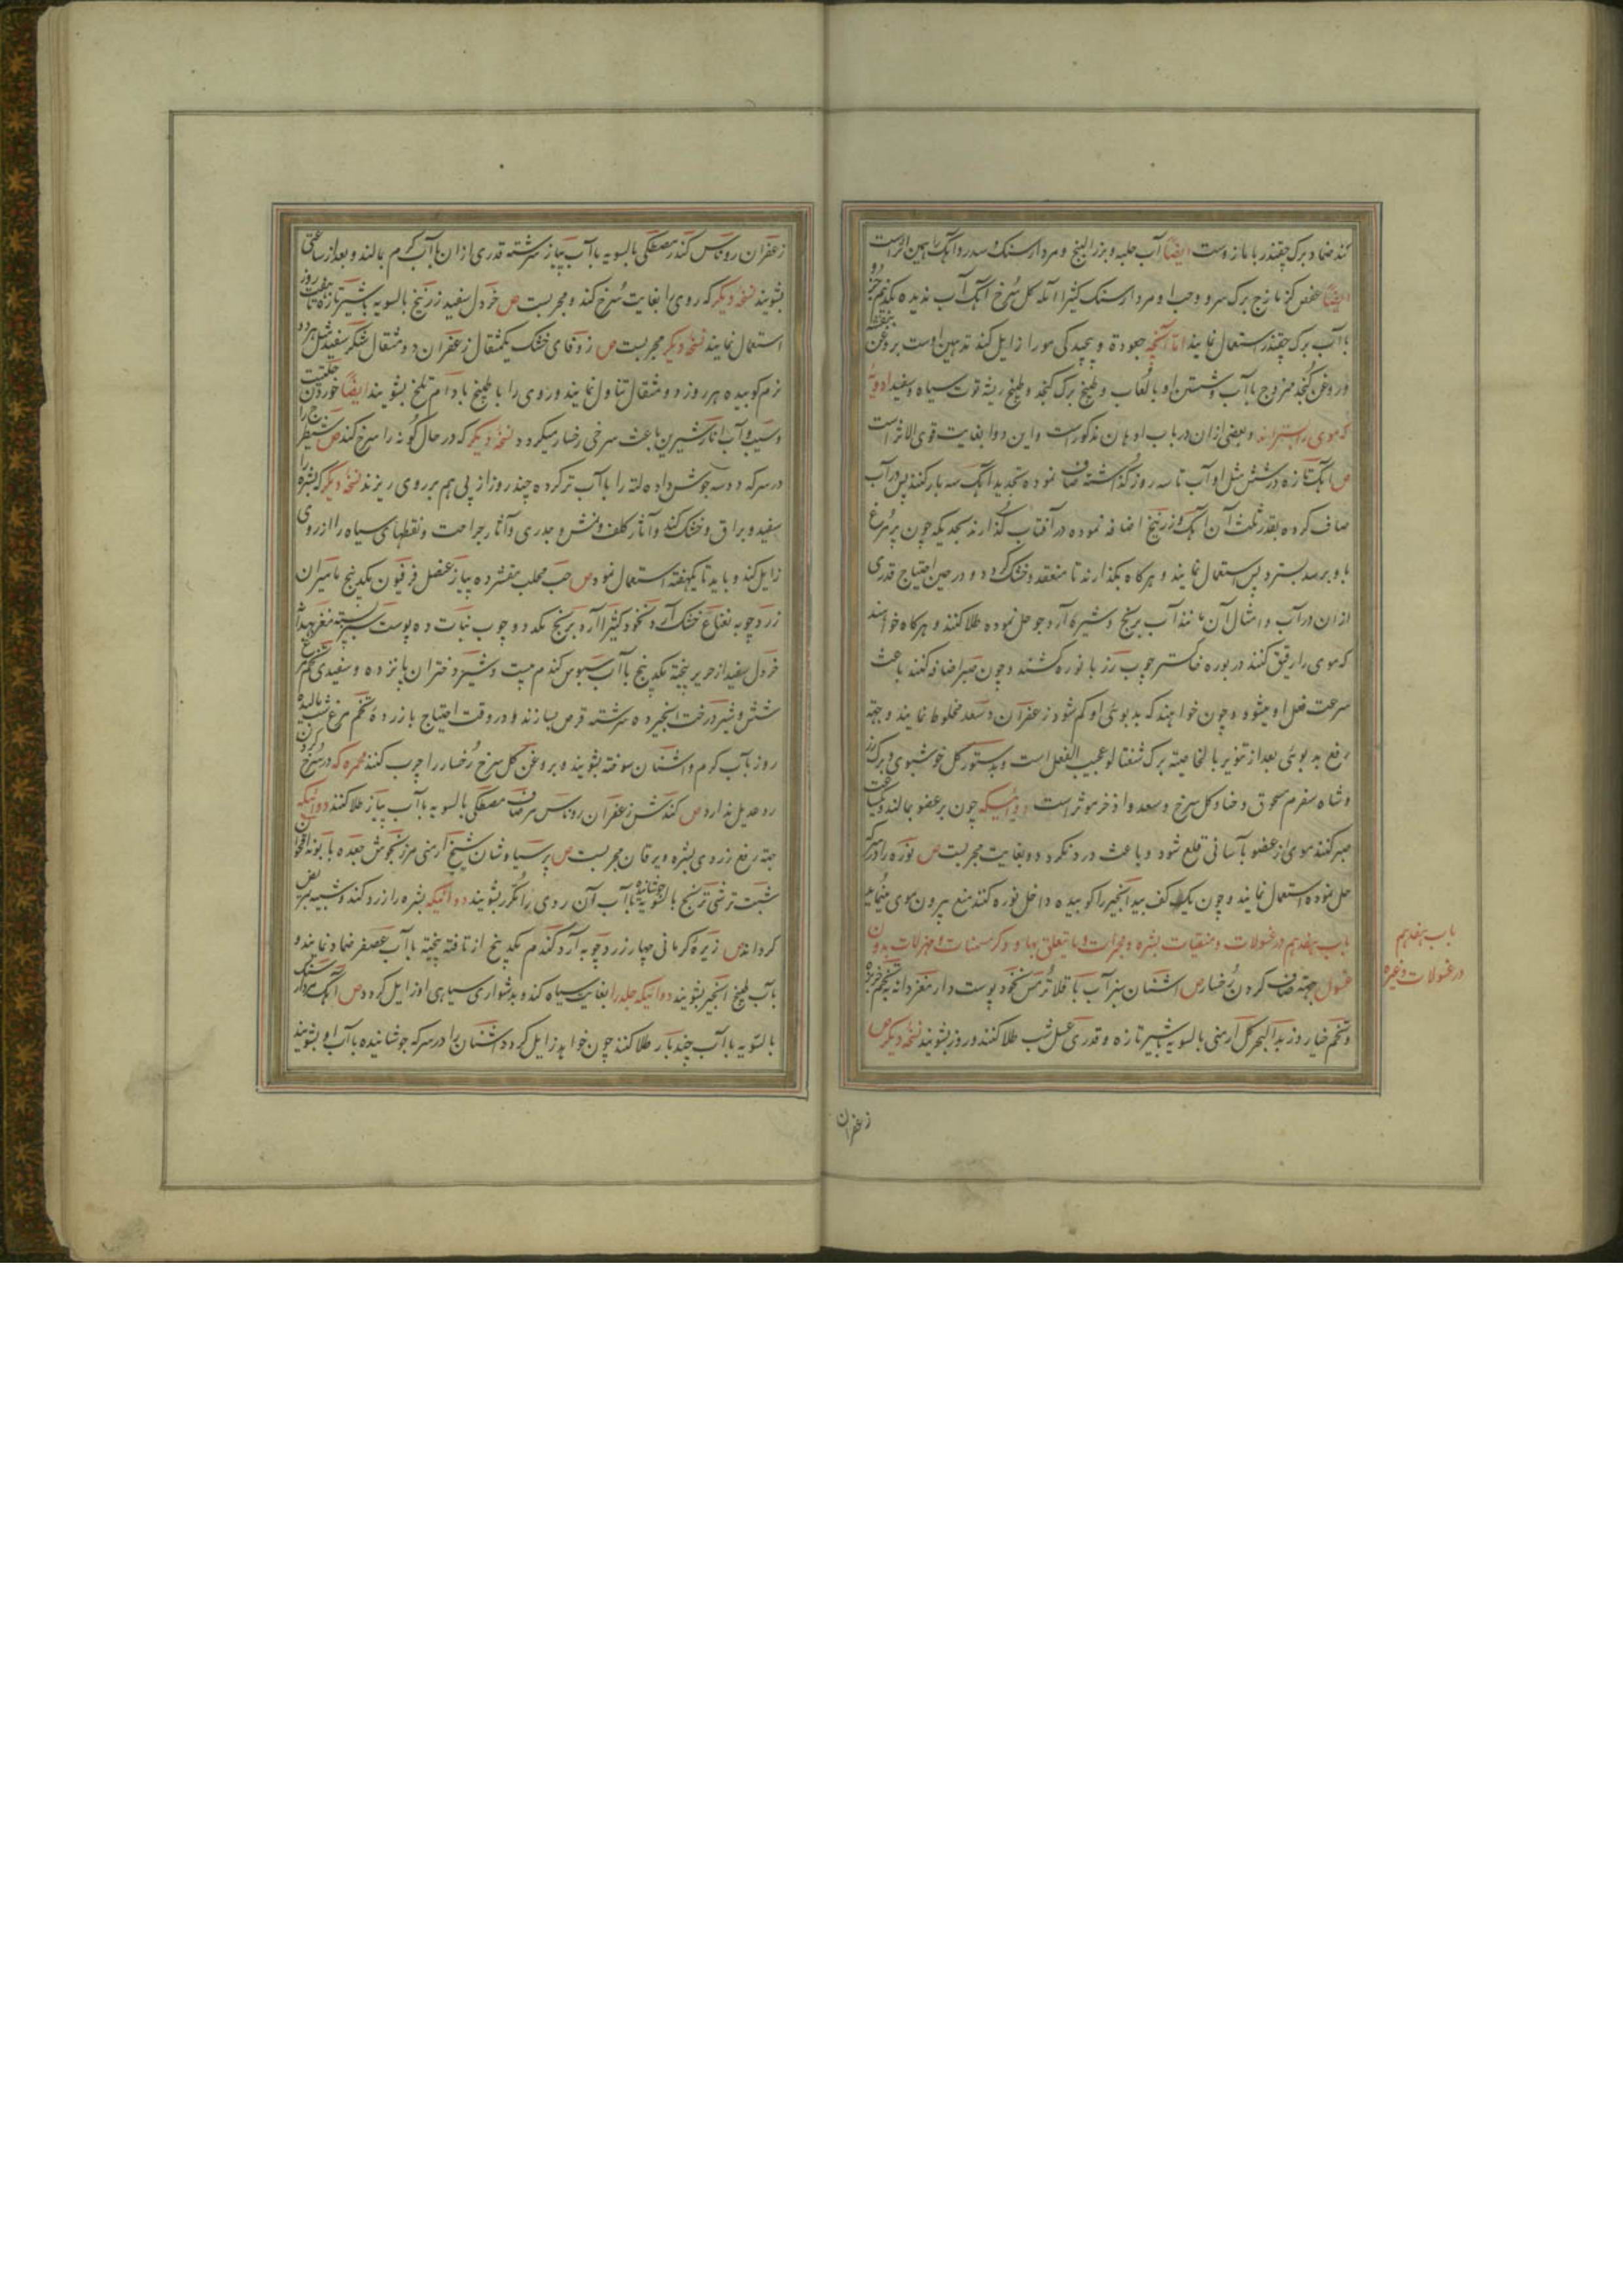 کند ضماد برک چقندر با مازوست ایضاً آب حلبه و بزرالبنج و مردارسنک و سدر و آهک را همین اثرست
ایضاً عفص کزمازج برک سرو وحنا و مردارسنک کثیرا آمله کل سُرخ آهک آب ندیده یکدرم
با آب برک چقندر استعمال نمایند اما آنچه جعودة و پیچیدکی مورا زایل کند تدهین اوست بروغن بنفشه
و روغن کنجد ممزوج باآب و شستن او بالعاب و طبیخ برک کنجد و طبیخ ریشه توت سیاه و سفید ادویهٔ
که موی را بسترانند و بعضی ازان در باب ادهان مذکورست و این دوا بغایت قوی الاثرست
ص آهک تازه در شش مثل او آب تا سه روز گذاشته صاف نموده تجدید آهک سه بار کنند پس در آب
صاف کرده بقدر ثلث آن آهک و زرنیخ اضافه نموده در آفتاب گذارند بحدیکه چون پر مرغ
باو برسد بسترد پس استعمال نمایند و هرکاه بکذارند تا منعقد و خشک کردد و در حین احتیاج قدری
ازان در آب و امثال آن مانند آب برنج و شیرهٔ آرد جو حل نموده طلا کنند و هرکاه خواهند
که موی را رقیق کنند در بوره خاکستر چوب رز با نوره کشند و چون صبر اضافه کنند باعث
سرعت فعل او میشود و چون خواهند که بدبوئی او کم شود زعفران و سعد مخلوط نمایند و جهة
رفع بدبوئی بعد از تنویر بالخاصیته برک شفتالو عجیب الفعل است و بدستور کل خوشبوی و برک رز
و شاه سفرم مسحوق و حنا و کل سرخ و سعد و اذخر موثر است دوائیکه چون بر عضو بمالند و یکساعت
صبر کنند موی از عضو بآسانی قلع شود و باعث درد نکردد و بغایت مجربست ص نوره را در سرکه
حل نموده استعمال نمایند و چون یک کف بیدانجیر را کوبیده داخل نوره کنند منع بیرون موی مینماید
باب هفدهم در غسولات و منقیات بشره و محمرات و مایتعلق بها و ذکر مسمنات و مهزلات بدن
غسول جهة صاف کردن رخسار ص اشنان سبز آب باقلا ترمس نخود پوست دار مغز دانه تخم خربزه
و تخم خیار و زبدالبحر کل ارمنی بالسویه بشیر تازه و قدری عسل شب طلا کنند و روز بشویند نسخه دیکر ص
باب هفدهم
در غسولات و غیره
زعفران
زعفران روناس کندر مصطکی بالسویه باآب پیاز سرشته قدری ازان باآب کرم بمالند و بعد از ساعتی
بشویند نسخه دیکر که روی را بغایت سُرخ کند و مجربست ص خردل سفید زرنیخ بالسویه بشیر تازه تا هفت روز
استعمال نمایند نسخه دیکر مجربست ص زوفای خشک یکمثقال زعفران دو مثقال شکر سفید مثل هردو
نرم کوبیده هر روز دو مثقال تناول نمایند و روی را با طبیخ بادام تلخ بشویند ایضاً خوردن حلتیت
و سیب و آب انار شیرین باعث سرخی رخسار میکردد نسخه دیکر که در حال کونه را سرخ کند ص شیطرج را
در سرکه دو سه جوش داده لته را باآب تر کرده چند روز از پی هم بر روی ریزند نسخه دیکر که بشره را
سفید و براق و خشک کند و آثار کلف و نمش و جدری و آثار جراحت و نقطهای سیاه را از روی
زایل کند و باید تا یکهفته استعمال نمود ص حب محلب مقشر ده پیاز عنصل فرفیون یکدرم پنج مامیران
زردچوبه نعناع خشک آرد نخود کثیرا آرد برنج یکدو چوب نبات ده پوست سبز پسته مغز بهدانه
خردل سفید از حریر بیخته یکدرم پنج باآب سبوس کندم بیست و شیر دختران پانزده و سفیدی تخم مرغ
شش و شیر درخت انجیر ده سرشته قرص بسازند و در وقت احتیاج با زردهٔ تخم مرغ شب مالیده
روز بآب کرم و اشنان سوخته بشویند و بروغن کل سرخ رُخسار را چرب کنند محمره که در سرخ کردن
رو عدیل ندارد ص کندش زعفران روناس مرصاف مصطکی بالسویه باآب پیاز طلا کنند دوائیکه
جهة رفع زردی بشره و یرقان مجربست ص پرسیاوشان شیح ارمنی مرزنجوش جعده بابونه اقحوان
شبت ترشی ترنج بالسویه جوشانیده باآب آن روی را مکرر بشویند دوائیکه بشره را زرد کند و شبیه بمریض
کرداند ص زیرهٔ کرمانی چهار زردچوبه آرد کندم یکدرم پنج از تافته بیخته باآب عصفر ضماد نمایند و
بآب طبیخ انجیر بشویند دوائیکه جلد را بغایت سیاه کند و بدشواری سیاهی او زایل کردد ص آهک مردارسنک
بالسویه باآب چند بار طلا کنند چون خواهند زایل کردد اشنان را در سرکه جوشانیده باآب او بشویند